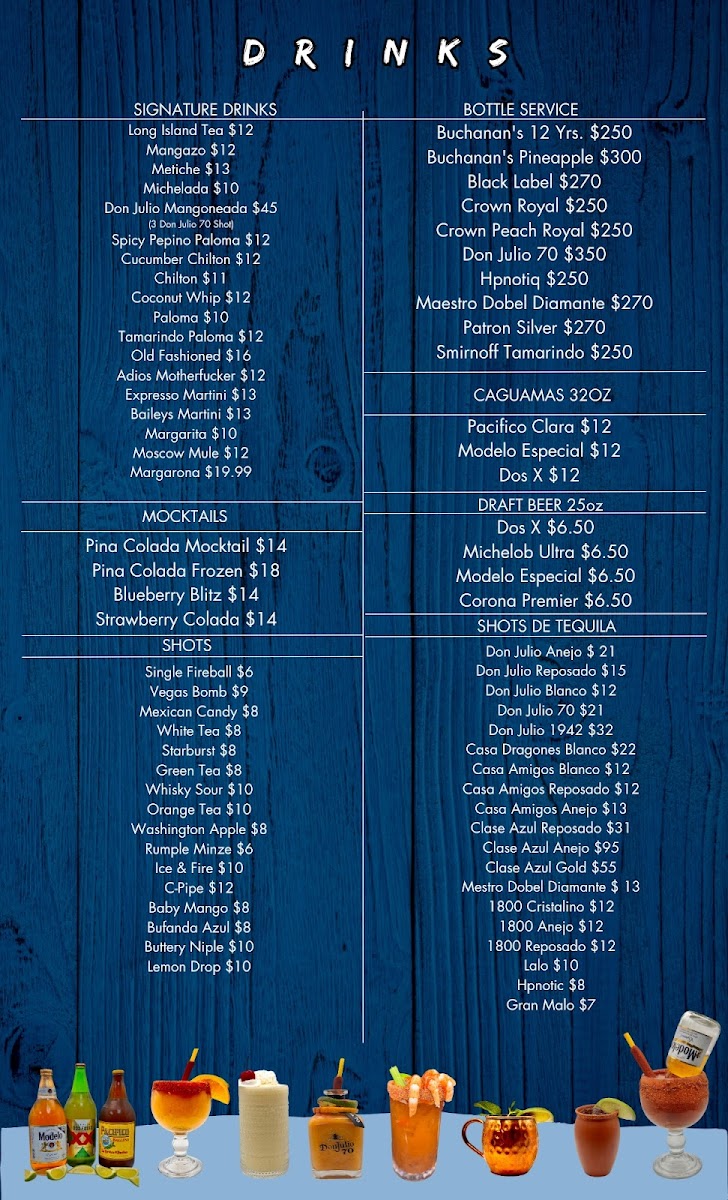 DRINKS
SIGNATURE DRINKS
Long Island Tea $12
Mangazo $12
Metiche $13
Michelada $10
Don Julio Mangoneada $45
(3 Don Julio 70 Shot)
Spicy Pepino Paloma $12
Cucumber Chilton $12
Chilton $11
Coconut Whip $12
Paloma $10
Tamarindo Paloma $12
Old Fashioned $16
Adios Motherfucker $12
Expresso Martini $13
Baileys Martini $13
Margarita $10
Moscow Mule $12
Margarona $19.99
MOCKTAILS
Pina Colada Mocktail $14
Pina Colada Frozen $18
Blueberry Blitz $14
Strawberry Colada $14
SHOTS
Single Fireball $6
Vegas Bomb $9
Mexican Candy $8
White Tea $8
Starburst $8
Green Tea $8
Whisky Sour $10
Orange Tea $10
Washington Apple $8
Rumple Minze $6
Ice & Fire $10
C-Pipe $12
Baby Mango $8
Bufanda Azul $8
Buttery Niple $10
Lemon Drop $10
BOTTLE SERVICE
Buchanan's 12 Yrs. $250
Buchanan's Pineapple $300
Black Label $270
Crown Royal $250
Crown Peach Royal $250
Don Julio 70 $350
Hpnotiq $250
Maestro Dobel Diamante $270
Patron Silver $270
Smirnoff Tamarindo $250
CAGUAMAS 32OZ
Pacifico Clara $12
Modelo Especial $12
Dos X $12
DRAFT BEER 25oz
Dos X $6.50
Michelob Ultra $6.50
Modelo Especial $6.50
Corona Premier $6.50
SHOTS DE TEQUILA
Don Julio Anejo $ 21
Don Julio Reposado $15
Don Julio Blanco $12
Don Julio 70 $21
Don Julio 1942 $32
Casa Dragones Blanco $22
Casa Amigos Blanco $12
Casa Amigos Reposado $12
Casa Amigos Anejo $13
Clase Azul Reposado $31
Clase Azul Anejo $95
Clase Azul Gold $55
Mestro Dobel Diamante $ 13
1800 Cristalino $12
1800 Anejo $12
1800 Reposado $12
Lalo $10
Hpnotic $8
Gran Malo $7
Modelo
PACIFICO
Don Julio
70
Modelo